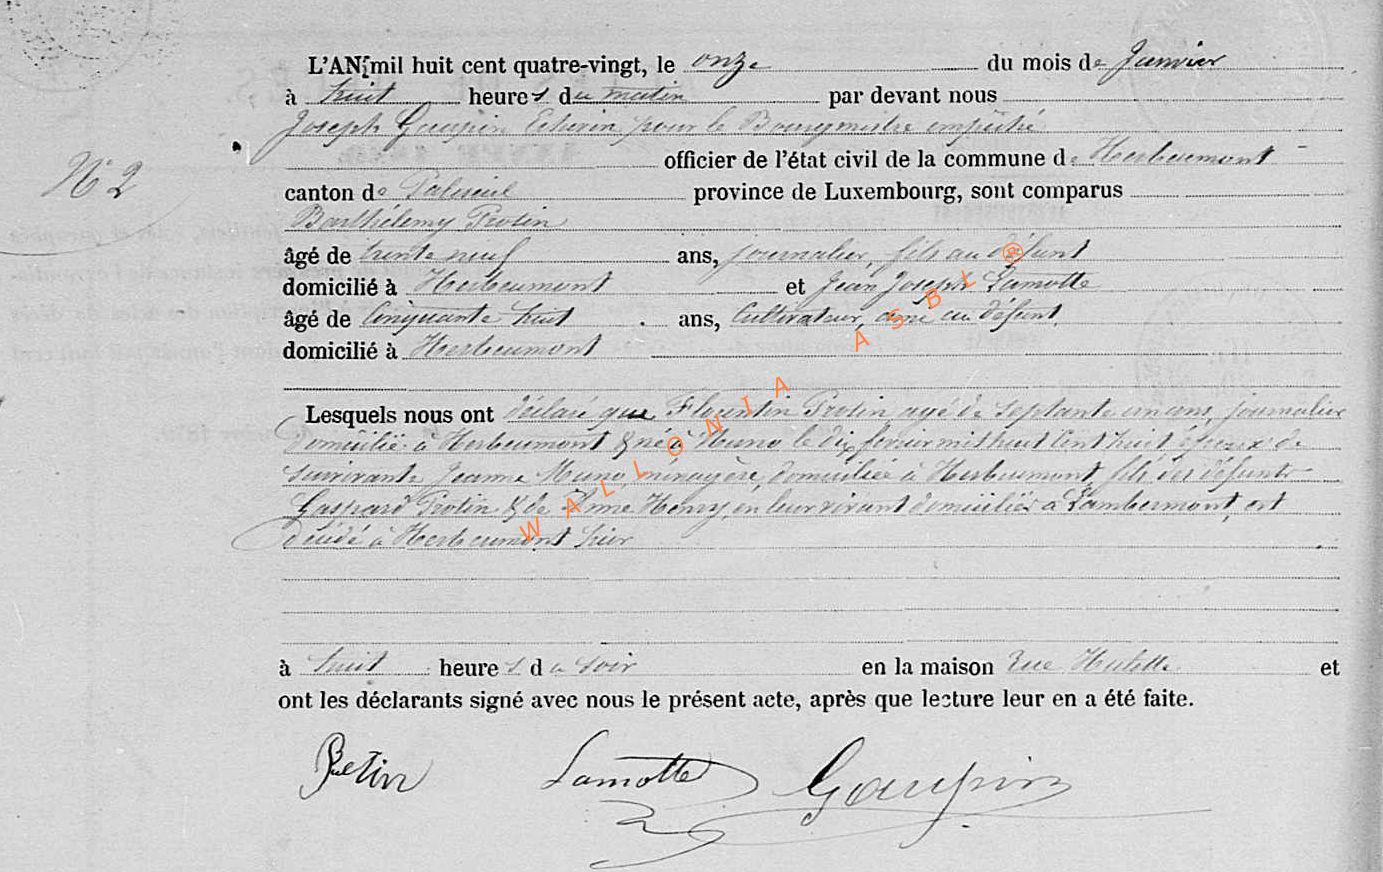 L'AN mil huit cent quatre-vingt, le onze du mois de Janvier
à huit heures du matin par devant nous
Joseph Goupin Echevin pour le Bourgmestre empêché
N° 2
officier de l'état civil de la commune de Herbeumont
canton de Paliseul province de Luxembourg, sont comparus
Barthélemy Protin
âgé de trente neuf ans, journalier, fils au défunt
domicilié à Herbeumont et Jean Joseph Lamotte
âgé de Cinquante huit ans, Cultivateur, ami au défunt
domicilié à Herbeumont
Lesquels nous ont déclaré que Florentin Protin agé de septante un ans, journalier
domicilié à Herbeumont & né à Muno le dix février mil huit cent huit époux de
survivante Jeanne Muno, ménagère, domiciliée à Herbeumont, fils des défunts
Gaspard Protin & de Anne Henry, en leur vivant domiciliés à Lambermont, est
décédé à Herbeumont hier
à huit heures du soir en la maison rue et
ont les déclarants signé avec nous le présent acte, après que lecture leur en a été faite.
Protin Lamotte Goupin
WALLONIA ASBL ®